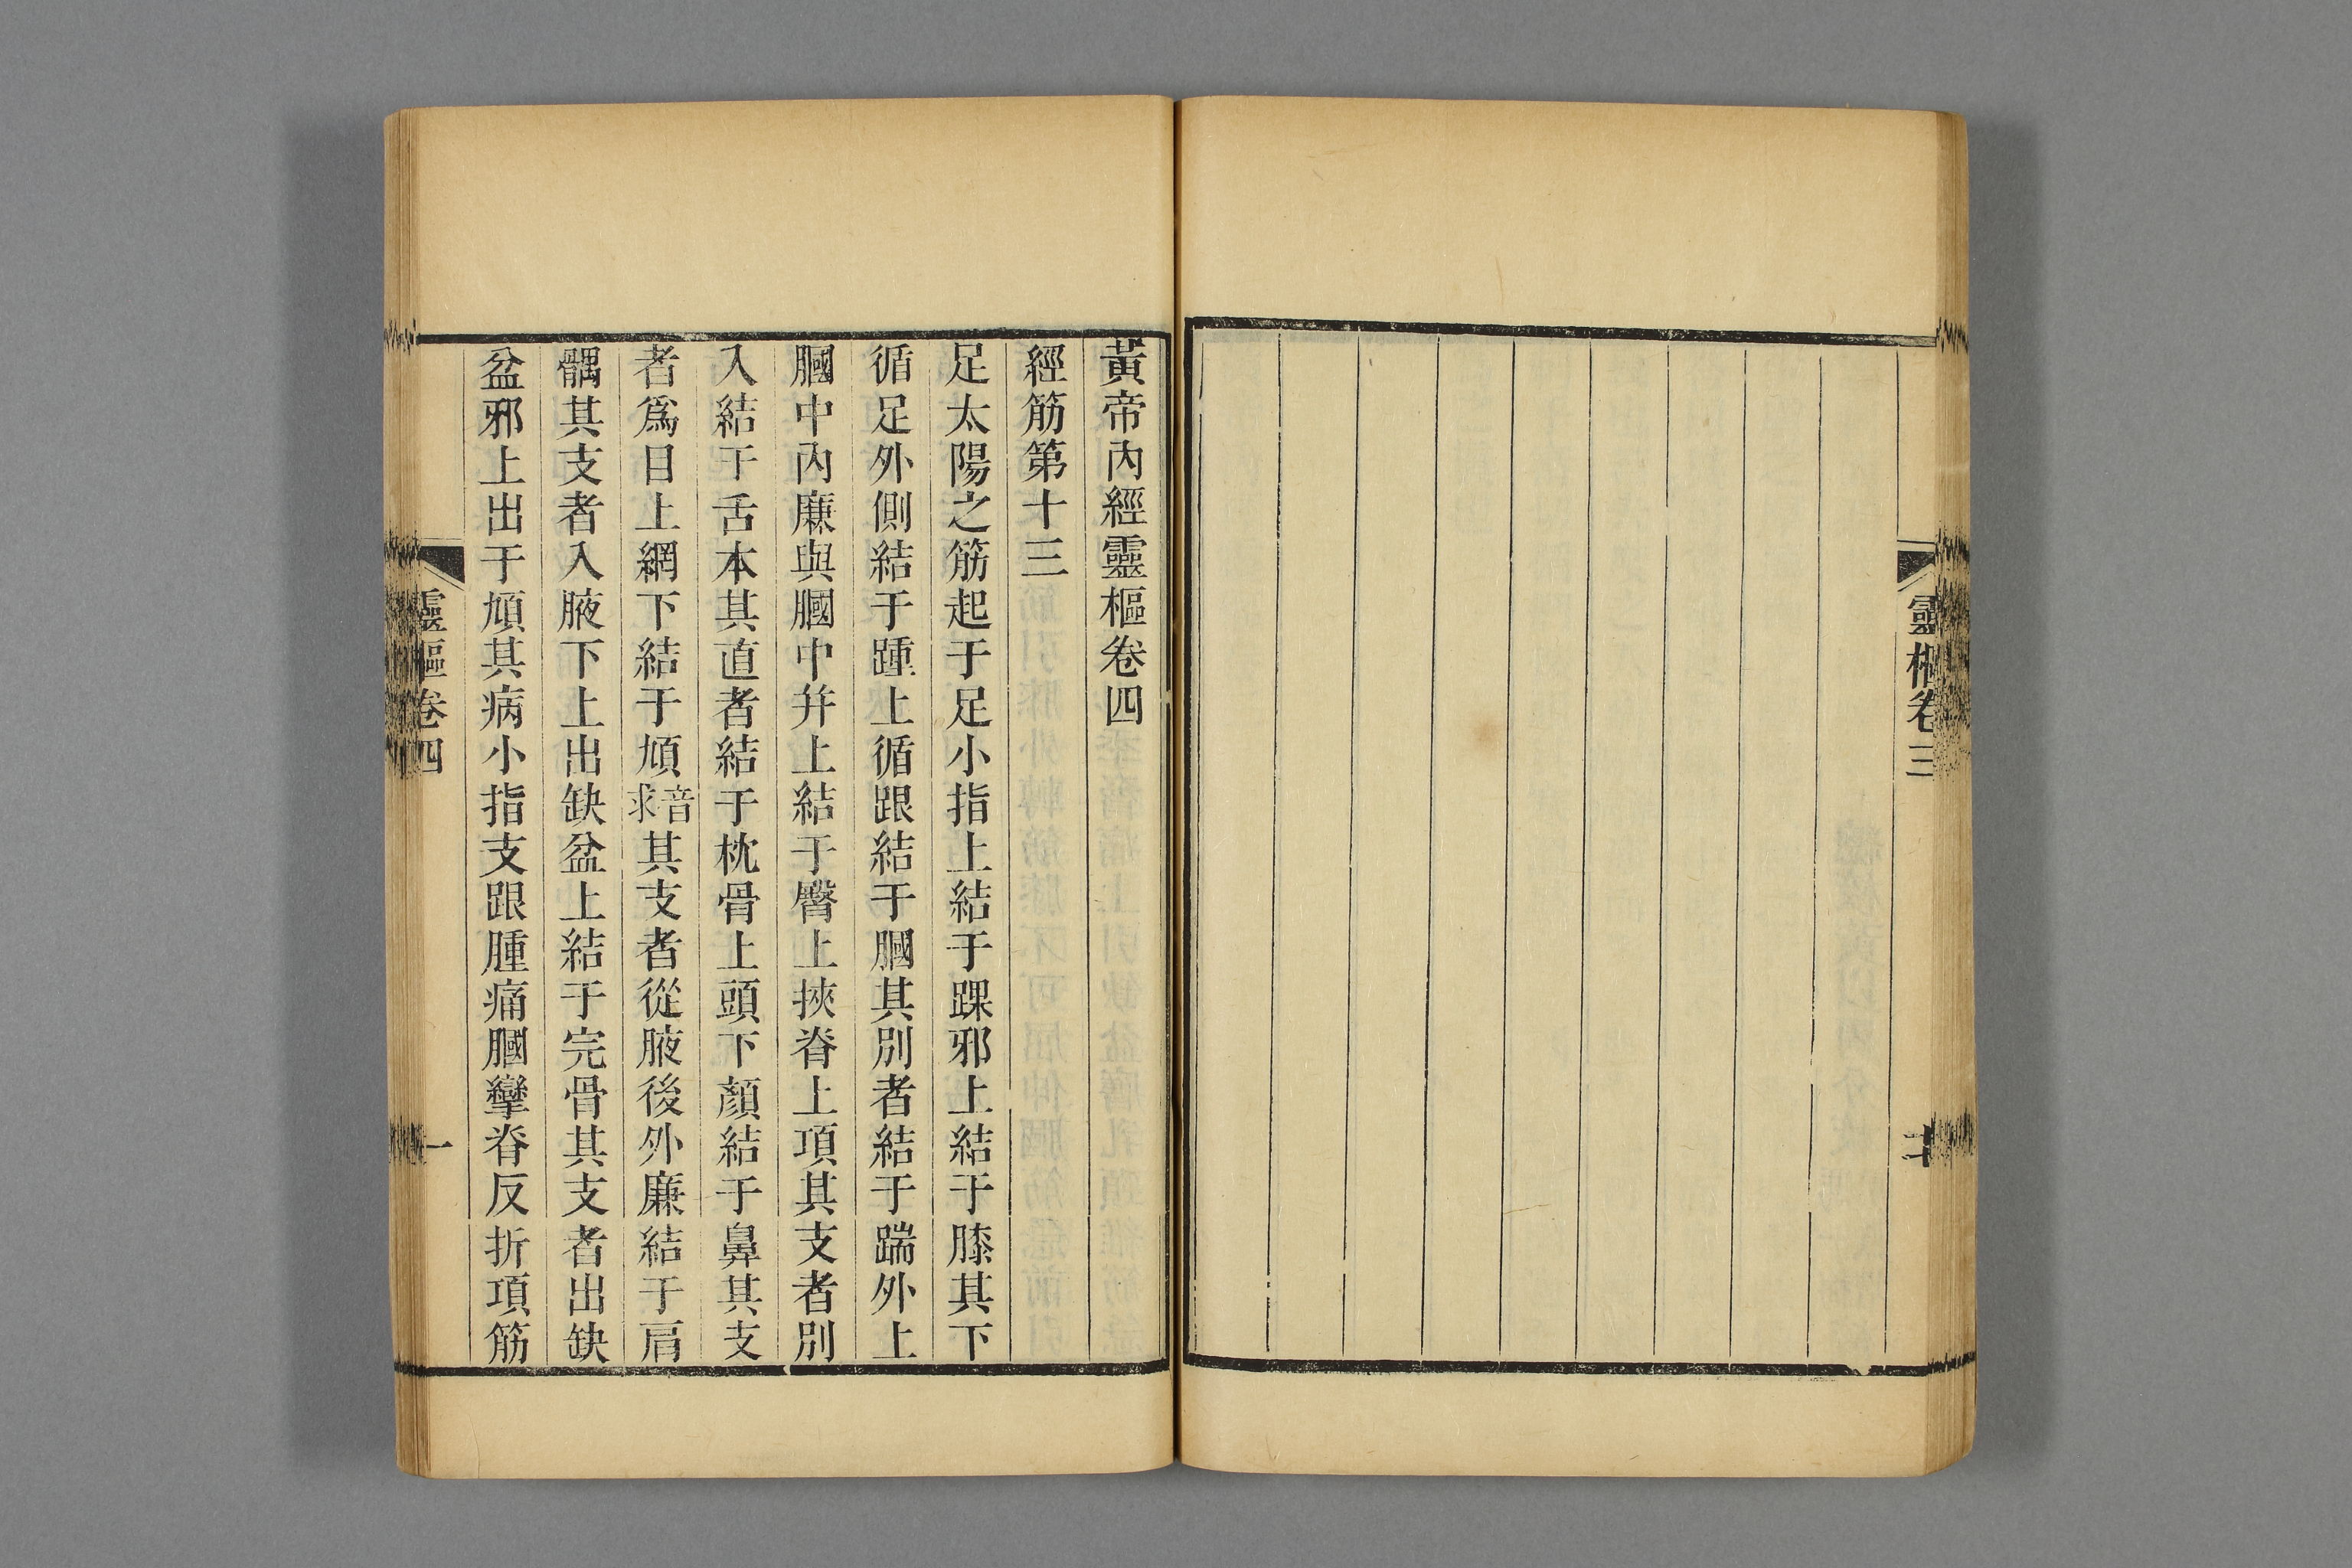 靈樞卷三
黃帝內經靈樞卷四
經筋第十三
足太陽之筋起于足小指上結于踝邪上結于膝其下
循足外側結于踵上循跟結于膕其別者結于踹外上
膕中內廉與膕中并上結于臀上挾脊上項其支者別
入結于舌本其直者結于枕骨上頭下顏結于鼻其支
者爲目上網下結于頄音求其支者從腋後外廉結于肩
髃其支者入腋下上出缺盆上結于完骨其支者出缺
盆邪上出于頄其病小指支跟腫痛膕攣脊反折項筋
靈樞卷四
一